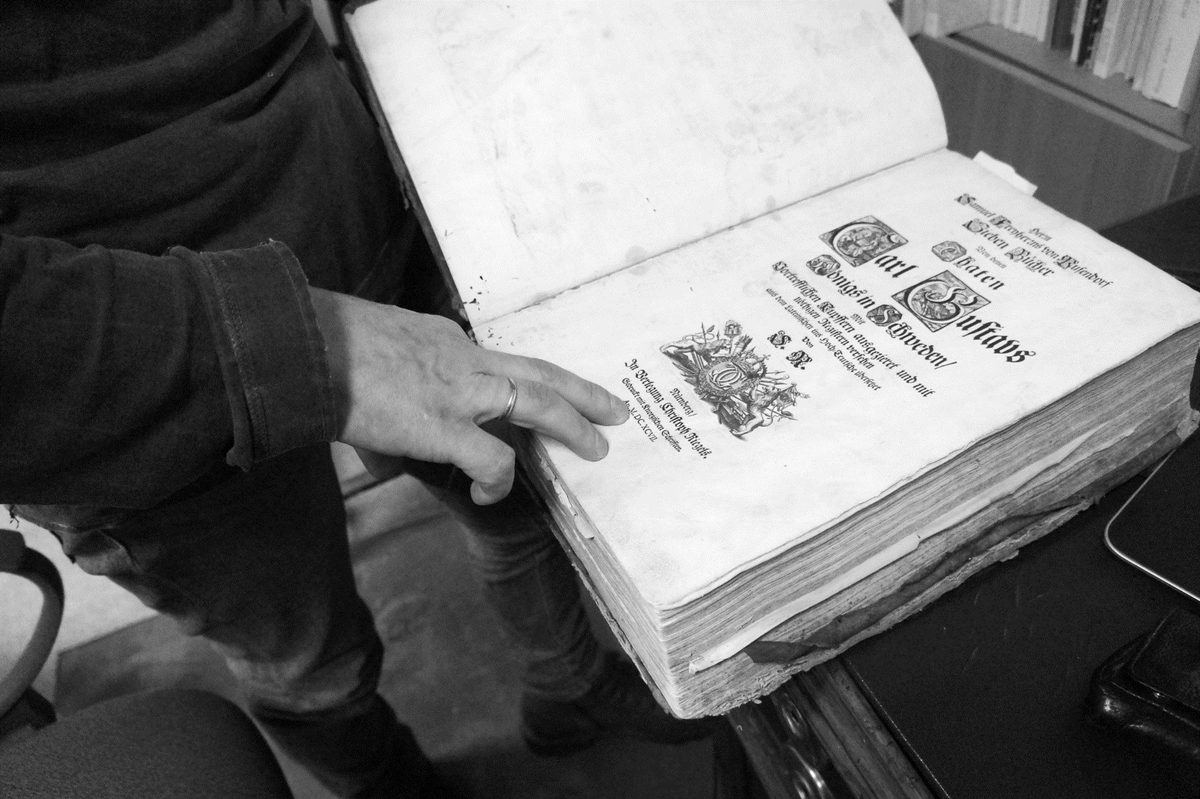 Herrn
Samuel Freyherrns von Pufendorf
Sieben Bücher
Von denen
Thaten
Carl Gustavs
Königs in Schweden/
Mit
Vortrefflichen Kupffern ausgezieret und mit
nöthigen Registern versehen
aus dem Lateinischen ins Hoch-Teutsche übersetzet
Von
S. R.
Nürnberg/
In Verlegung Christoph Riegels,
Gedruckt mit Knorzischen Schrifften.
A. M. DC. XCVII.